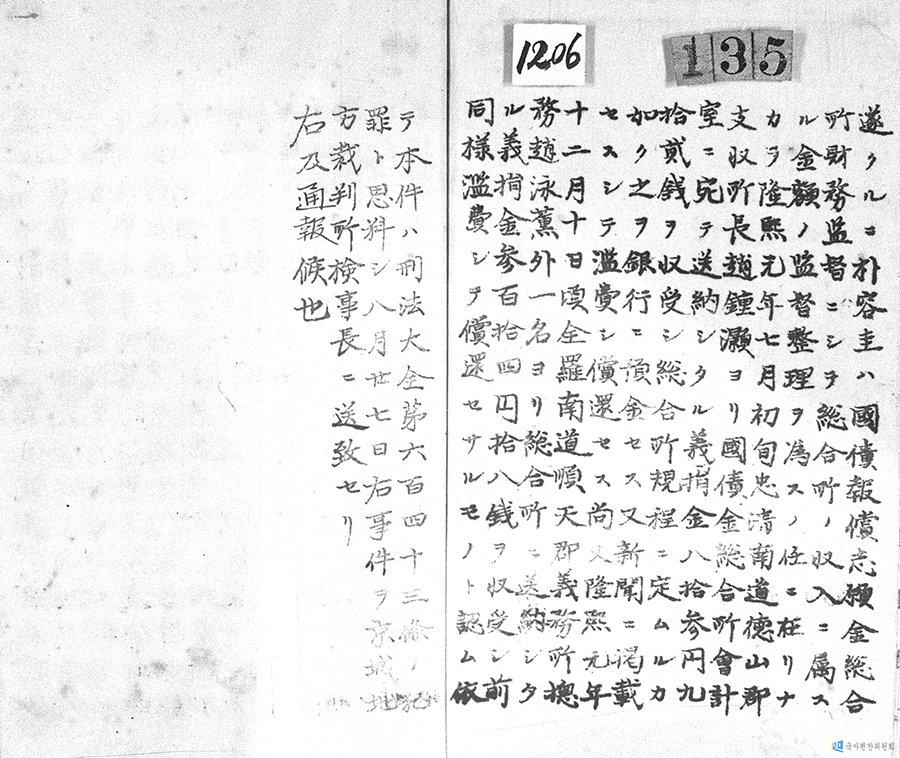 1206
135
遂クルニ朴容圭ハ國債報償志願金総合
所財務监督ニシテ総合所ノ収入ニ属ス
ル金額ノ监督整理ヲ為スノ任ニ在リナ
カラ隆熙元年七月初旬忠清南道德山郡
支収所長趙鍾灝ヨリ國債金総合所會計
室ニ宛テ送納シタル義捐金八拾参円九
拾貳銭ヲ収受シ総合所規程ニ定ムルカ
如ク之ヲ銀行ニ預金セス又新聞ニ掲載
セスシテ濫費シ償還セス尚又隆熙元年
十二月十日頃全羅南道順天郡義務所摠
務趙泳薫外一名ヨリ総合所ニ送納シタ
ル義捐金参百拾四円拾八銭ヲ収受シ前
同様濫費シテ償還セサルモノト認ム依
テ本件ハ刑法大全第六百四十三條ノ犯
罪ト思料シ八月廿七日右事件ヲ京城地
方裁判所検事長ニ送致セリ
右及通報候也
국사편찬위원회